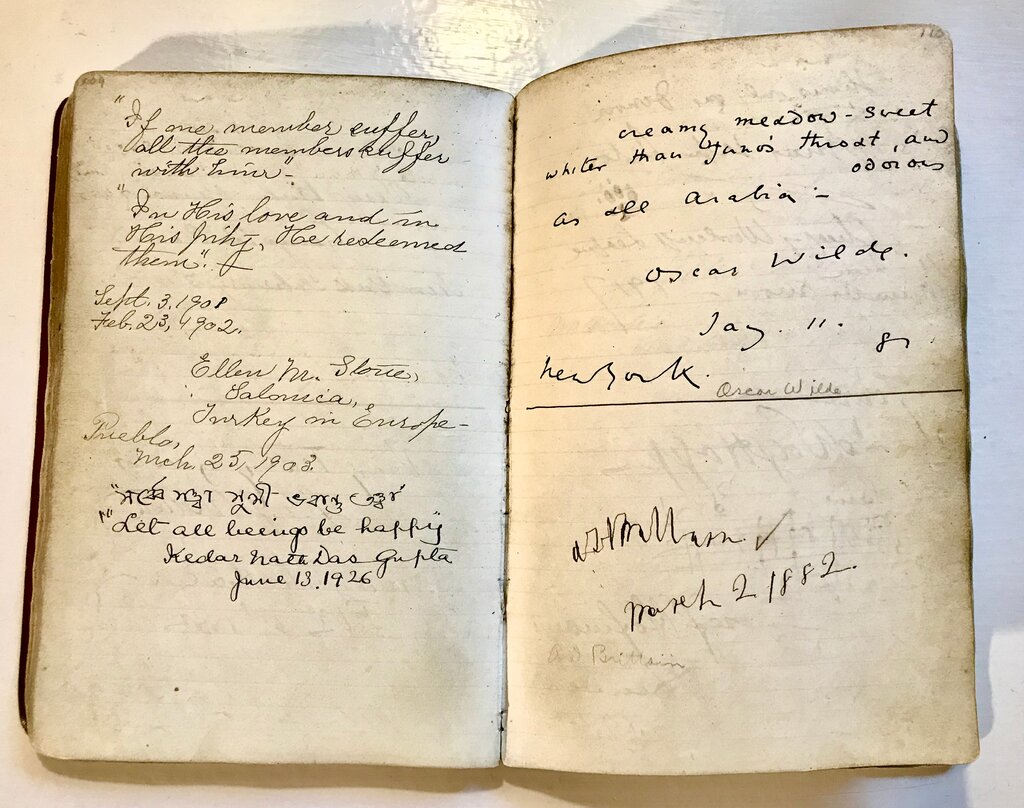 109
"If one member suffer,
all the members suffer
with him"-
"In His love and in
His pity, He redeemed
them".
Sept. 3, 1901
Feb. 23, 1902.
Ellen M. Stone,
Salonica,
Turkey in Europe-
Pueblo,
Mch. 25, 1903.
সুখী ভবন্তু
"Let all beings be happy
Kedar Nath Das Gupta
June 13. 1926
110
creamy meadow-sweet
whiter than Juno's throat, and
odorous
as all Arabia -
Oscar Wilde.
Jay. 11.
82
New York.
Oscar Wilde
March 2 1882.
Brittain